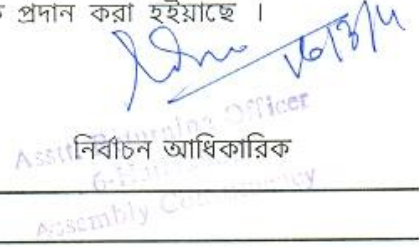 প্রদান করা হইয়াছে ।
16/3/11
Asstt. Returning Officer
নির্বাচন আধিকারিক
Assembly Constituency